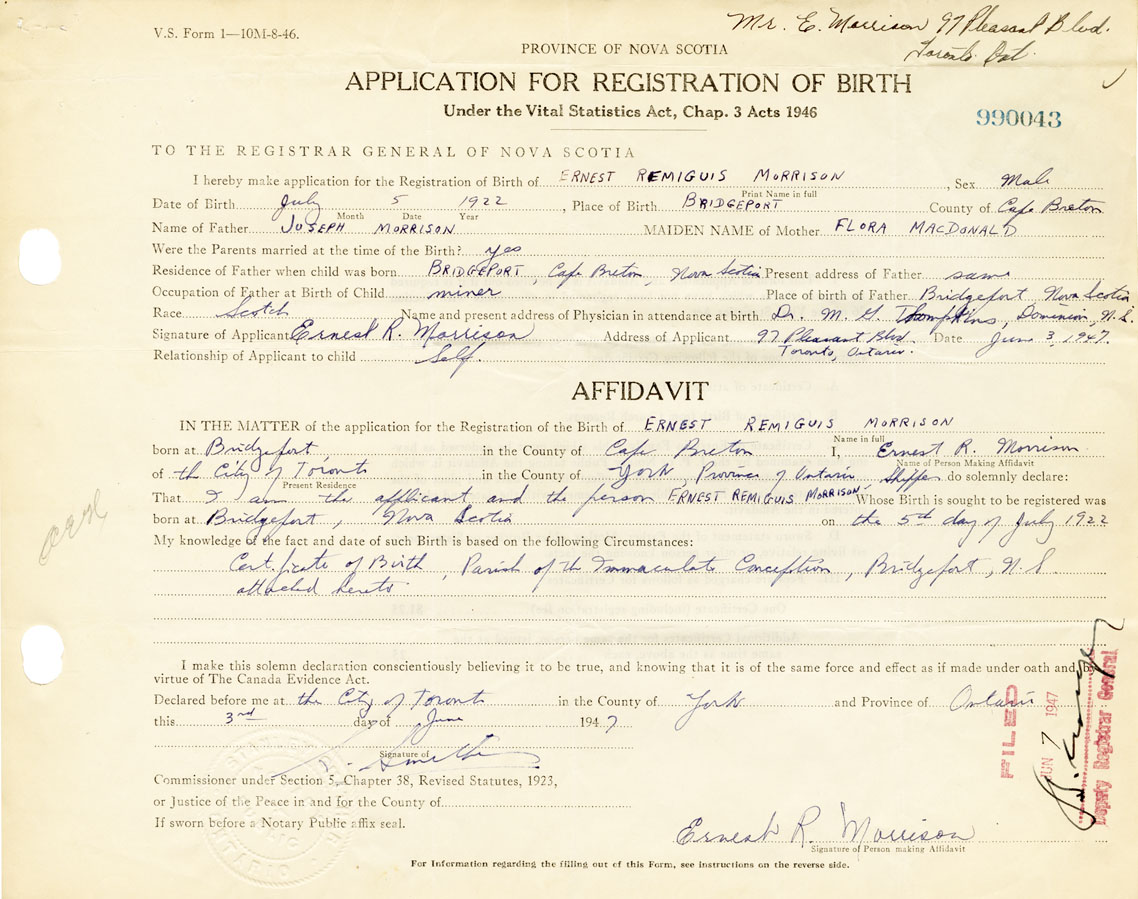 V.S. Form 1—10M-8-46.
Mr. E. Morrison 97 Pleasant Blvd.
Toronto Ont.
PROVINCE OF NOVA SCOTIA
APPLICATION FOR REGISTRATION OF BIRTH
Under the Vital Statistics Act, Chap. 3 Acts 1946
990043
TO THE REGISTRAR GENERAL OF NOVA SCOTIA
I hereby make application for the Registration of Birth of ERNEST REMIGUIS MORRISON, Sex Male
Print Name in full
Date of Birth July 5 1922, Place of Birth BRIDGEPORT County of Cape Breton
Month Date Year
Name of Father JOSEPH MORRISON MAIDEN NAME of Mother FLORA MACDONALD
Were the Parents married at the time of the Birth? yes
Residence of Father when child was born BRIDGEPORT, Cape Breton, Nova Scotia Present address of Father same
Occupation of Father at Birth of Child miner Place of birth of Father Bridgeport Nova Scotia
Race Scotch Name and present address of Physician in attendance at birth Dr. M. G. Thompkins, Dominion, N.S.
Signature of Applicant Ernest R. Morrison Address of Applicant 97 Pleasant Blvd. Date June 3, 1947.
Toronto, Ontario.
Relationship of Applicant to child Self.
AFFIDAVIT
IN THE MATTER of the application for the Registration of the Birth of ERNEST REMIGUIS MORRISON
Name in full
born at Bridgeport, in the County of Cape Breton I, Ernest R. Morrison
Name of Person Making Affidavit
of the City of Toronto in the County of York Province of Ontario, do solemnly declare:
Present Residence
That I am the applicant and the person ERNEST REMIGUIS MORRISON Whose Birth is sought to be registered was
born at Bridgeport, Nova Scotia on the 5th day of July 1922
My knowledge of the fact and date of such Birth is based on the following Circumstances:
Certificate of Birth, Parish of the Immaculate Conception, Bridgeport, N.S.
attached hereto
I make this solemn declaration conscientiously believing it to be true, and knowing that it is of the same force and effect as if made under oath and by
virtue of The Canada Evidence Act.
Declared before me at the City of Toronto in the County of York and Province of Ontario
this 3rd day of June 1947
Signature of
Commissioner under Section 5, Chapter 38, Revised Statutes, 1923,
or Justice of the Peace in and for the County of
If sworn before a Notary Public affix seal.
Ernest R. Morrison
Signature of Person making Affidavit
For Information regarding the filling out of this Form, see instructions on the reverse side.
FILED
JUN 7 1947
Deputy Registrar General